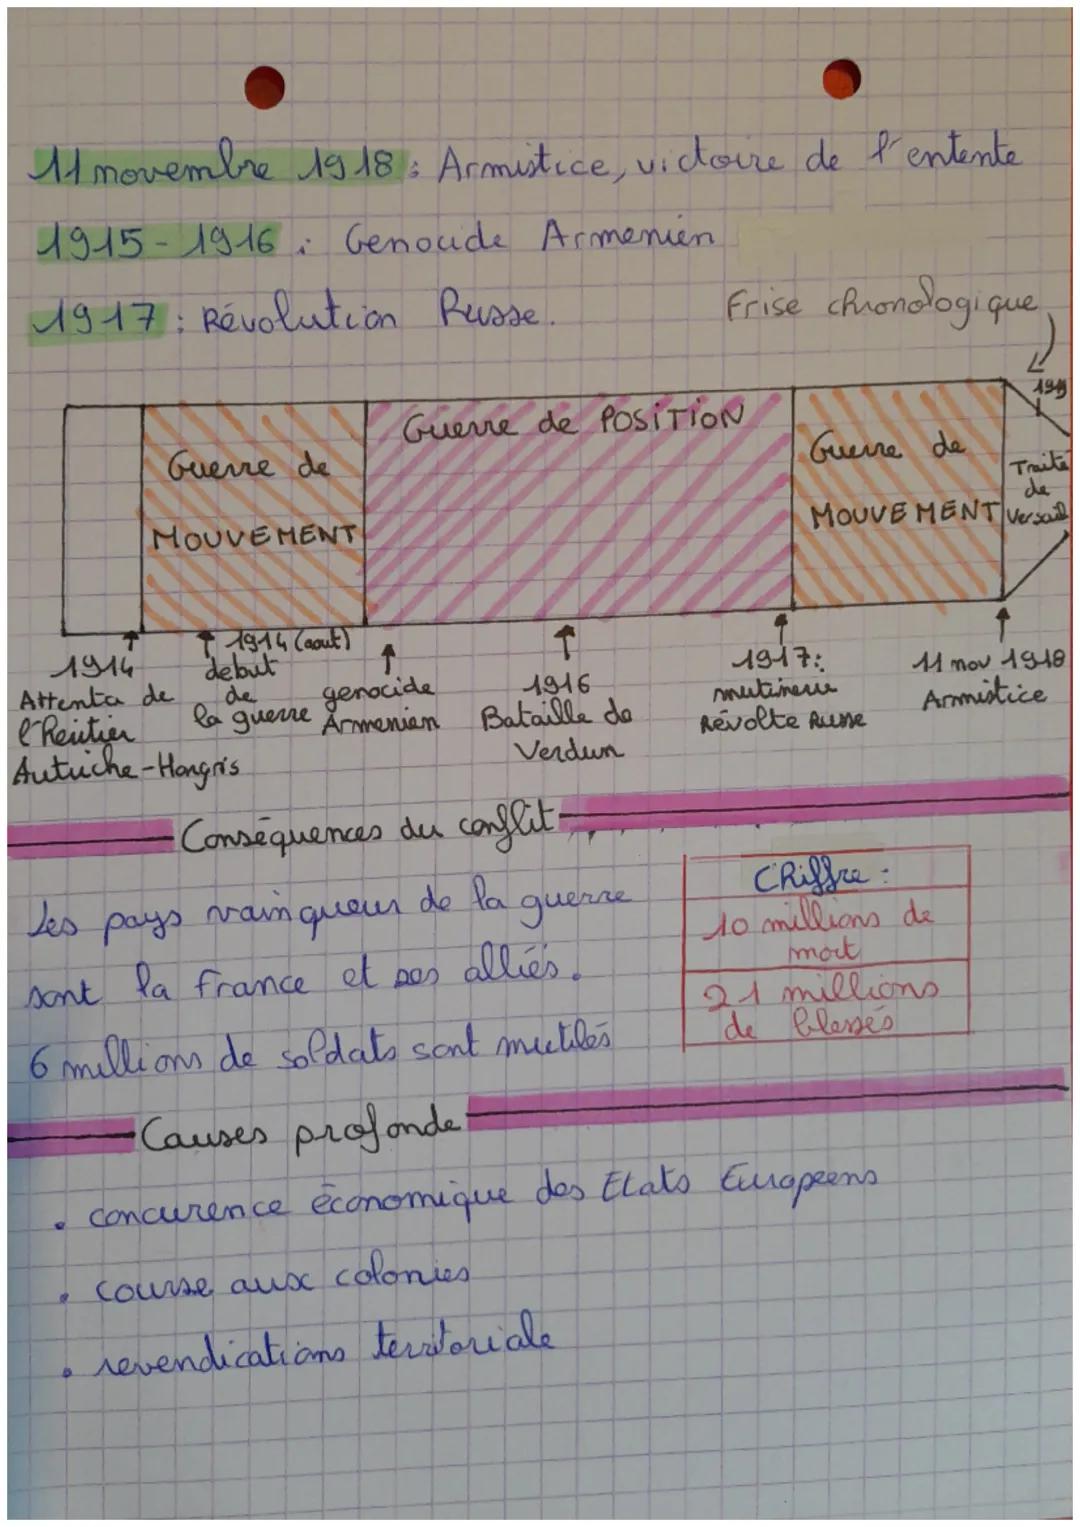 11 novembre 1918 : Armistice, victoire de l'entente
1915-1916 : Genocide Armenien
1917 : Révolution Russe.
Frise chronologique
1919
Guerre de
MOUVEMENT
Guerre de POSITION
Guerre de
MOUVEMENT
Traité
de
Versaill
1914
Attenta de
l'héritier
Autriche-Hongris
1914 (aout)
debut
de
la guerre
genocide
Armenien
1916
Bataille de
Verdun
1917:
mutinerie
Révolte Russe
11 nov 1918
Armistice
Conséquences du conflit
Les pays vainqueur de la guerre
sont la france et ses alliés.
6 millions de soldats sont mutilés
Chiffre :
10 millions de
mort
21 millions
de blessés
Causes profonde
• concurence économique des Etats Européens
• course aux colonies
• revendications territoriale